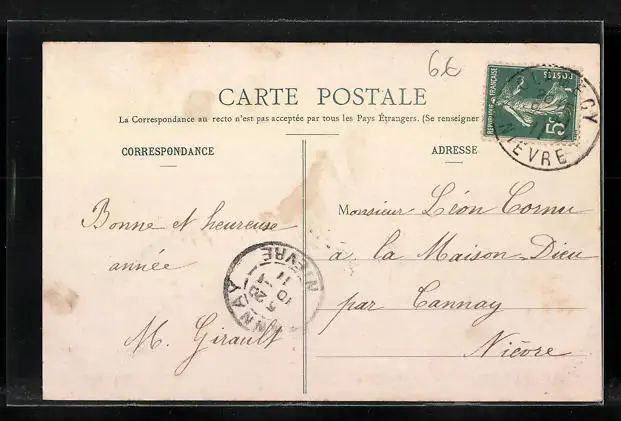 6€
CARTE POSTALE
La Correspondance au recto n'est pas acceptée par tous les Pays Étrangers. (Se renseigner
CORRESPONDANCE
ADRESSE
REPUBLIQUE FRANÇAISE
POSTES
5c
CY
NIÈVRE
Bonne et heureuse
année
M. Girault
NNAY
NIÈVRE
5 20
10 -1
11
Monsieur Léon Cornu
à la Maison-Dieu
par Tannay
Nièvre